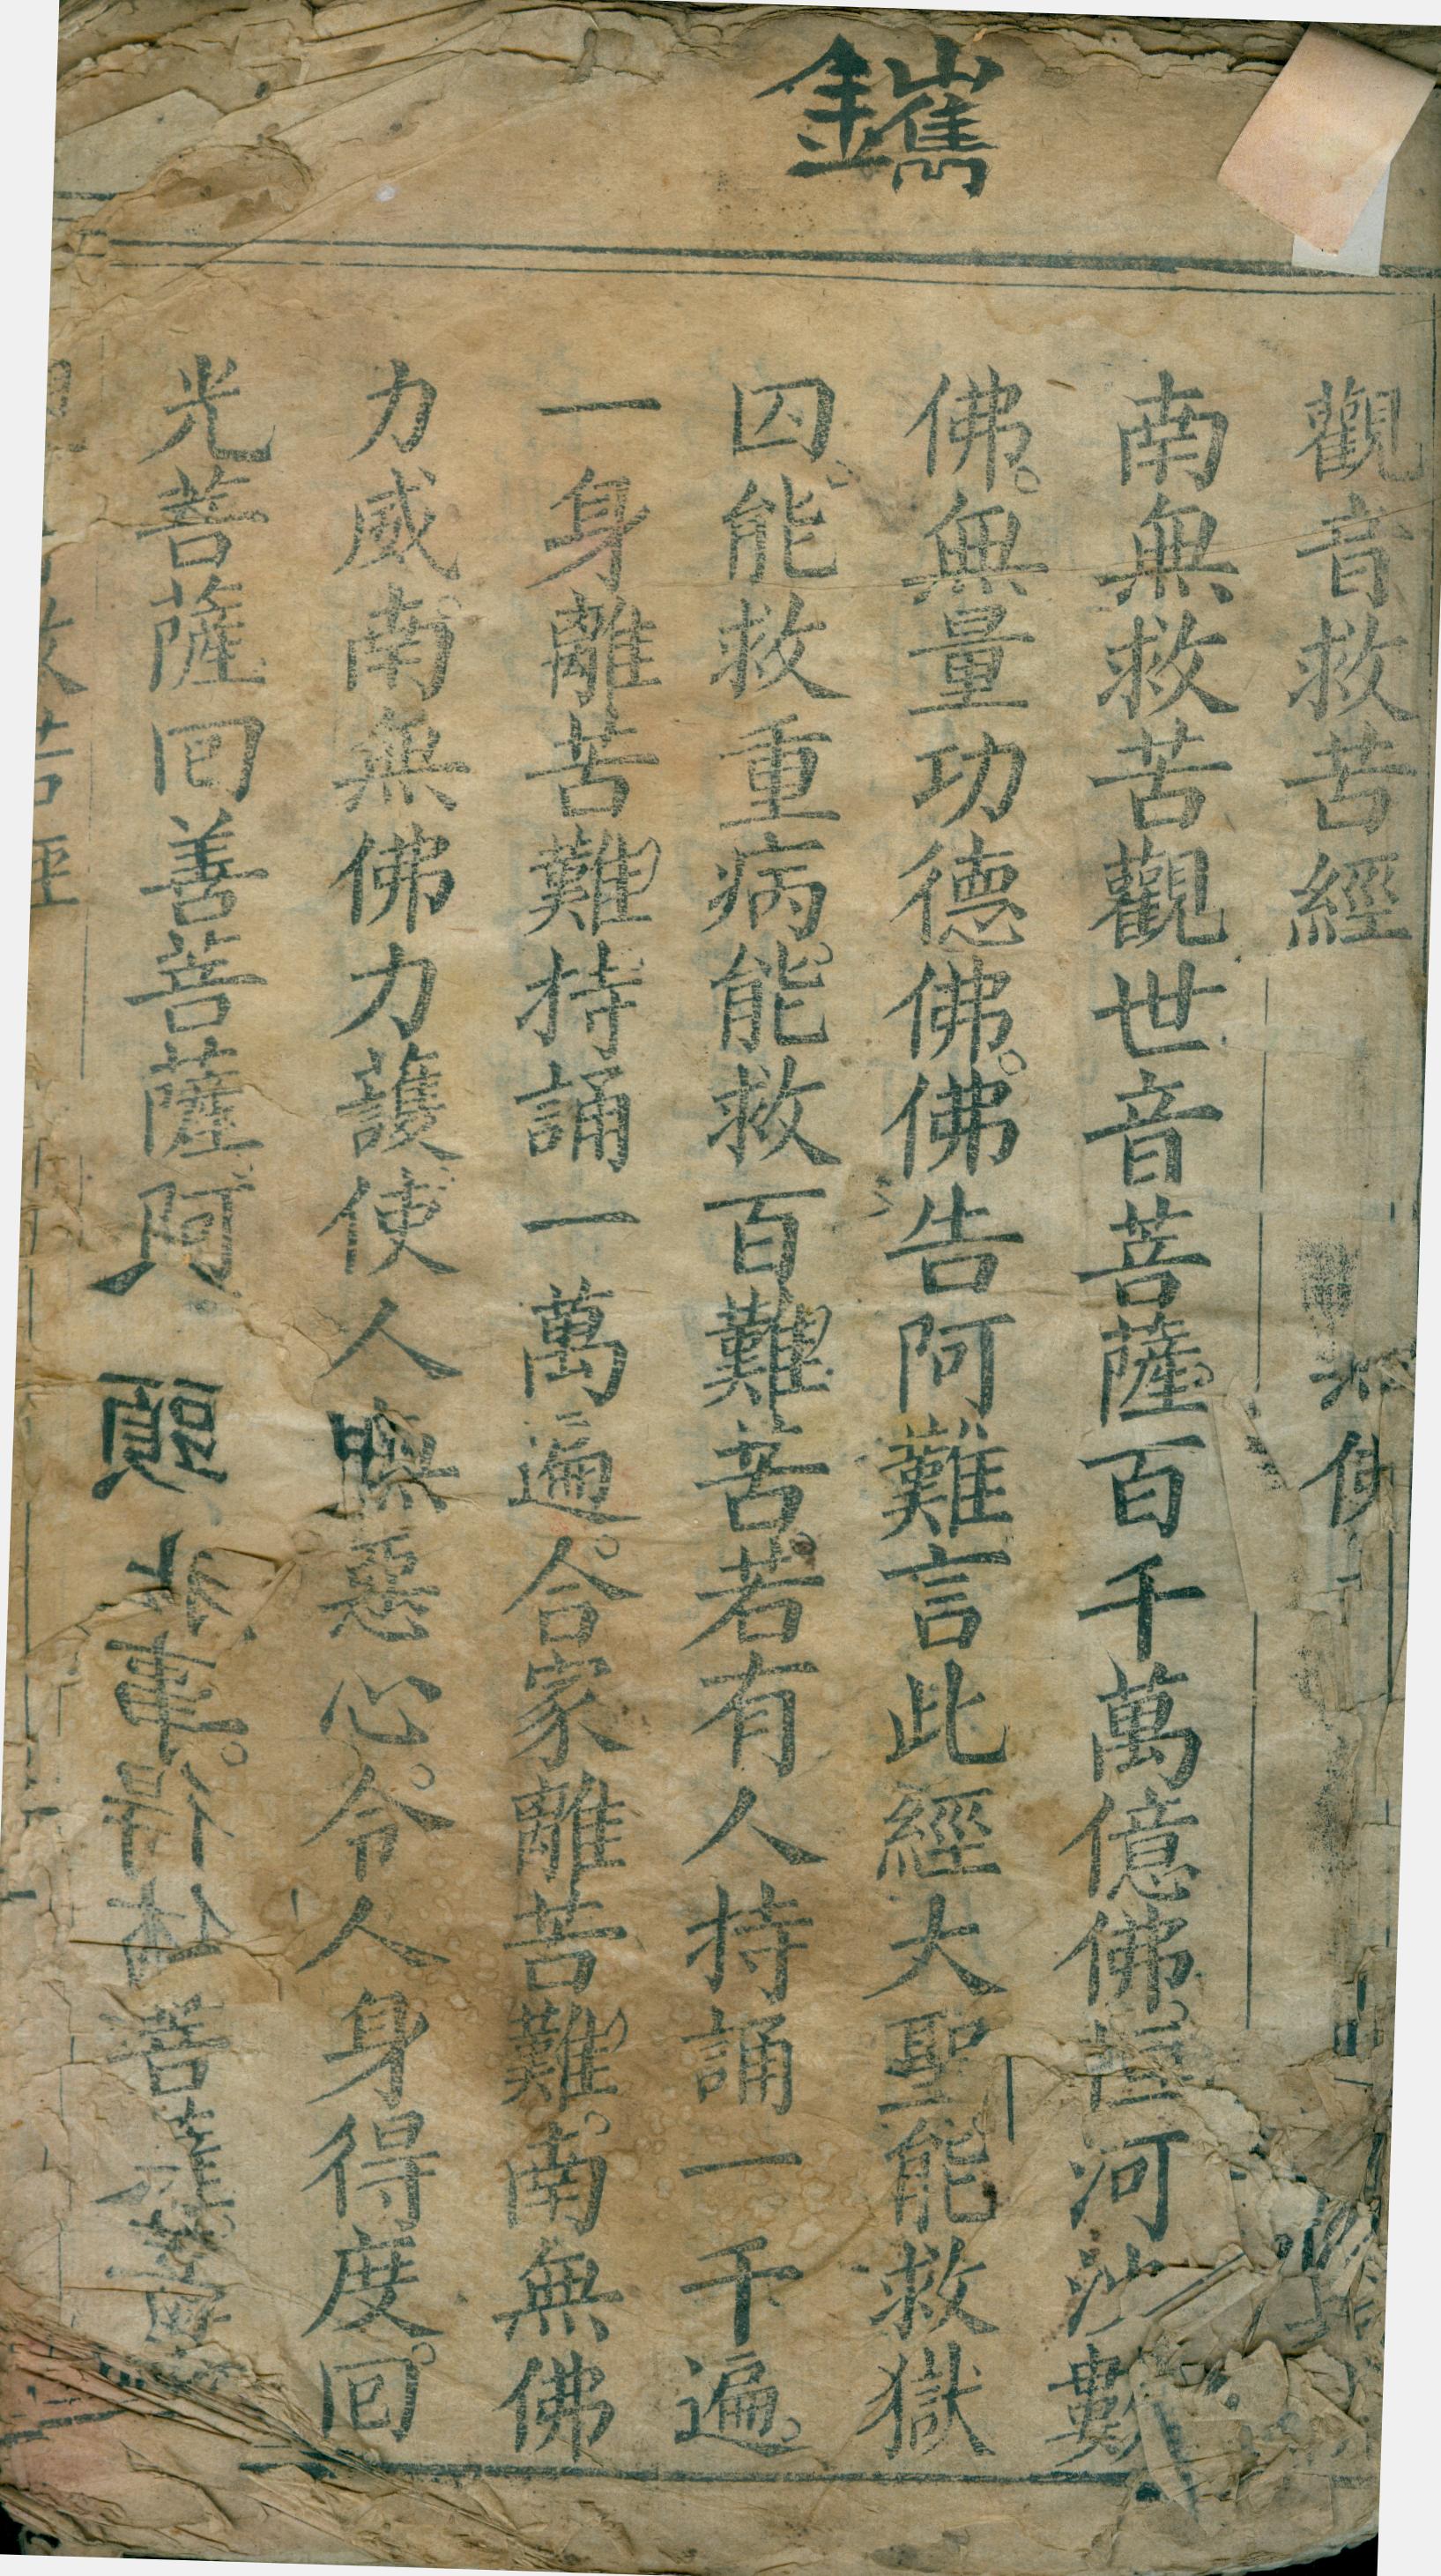 鑴
觀音救苦經
南無救苦觀世音菩薩百千萬億佛恒河沙數
佛無量功德佛佛告阿難言此經大聖能救獄
囚能救重病能救百難苦若有人持誦一千遍
一身離苦難持誦一萬遍合家離苦難南無佛
力威南無佛力護使人無惡心令人身得度回
光菩薩回善菩薩阿
菩薩